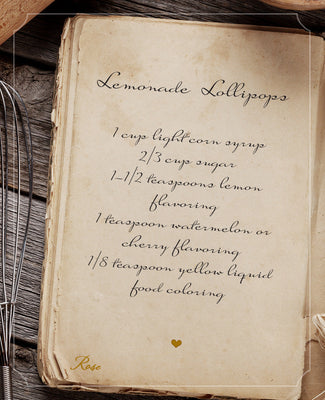 Lemonade Lollipops
1 cup light corn syrup
2/3 cup sugar
1-1/2 teaspoons lemon
flavoring
1 teaspoon watermelon or
cherry flavoring
1/8 teaspoon yellow liquid
food coloring
Rose